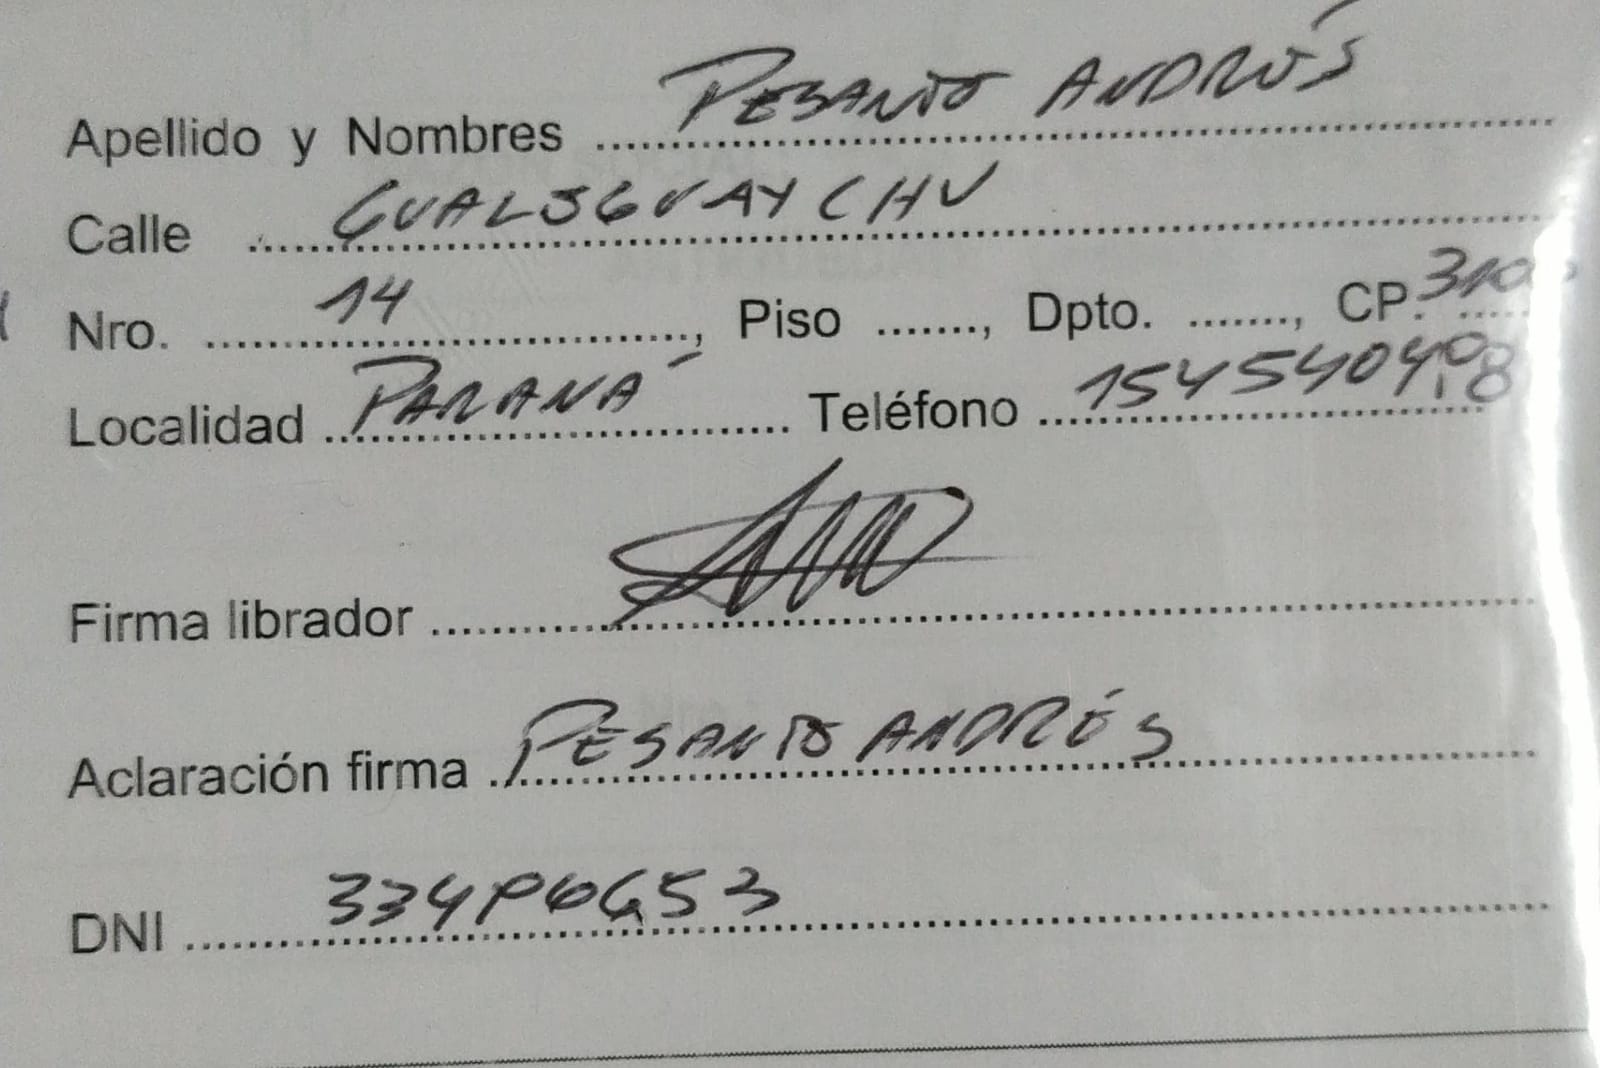 Apellido y Nombres PESANTO ANDRÉS
Calle GUALEGUAYCHU
Nro. 14, Piso ......., Dpto. ......., CP. 3100
Localidad PARANÁ Teléfono
Firma librador
Aclaración firma PESANTO ANDRÉS
DNI